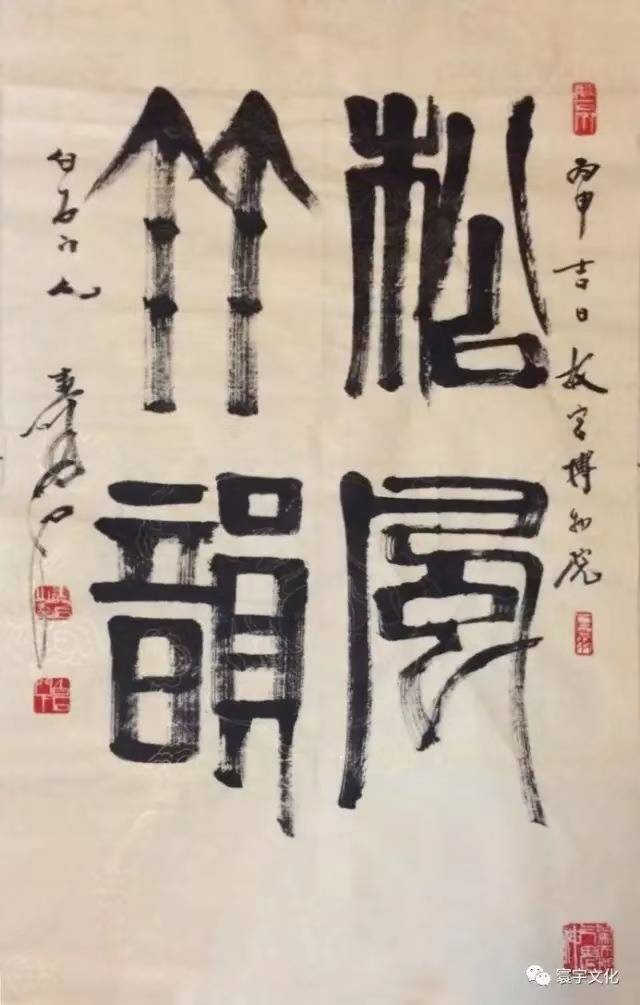 松風
竹韻
丙申吉日故宫博物院
白石门人
寰宇文化